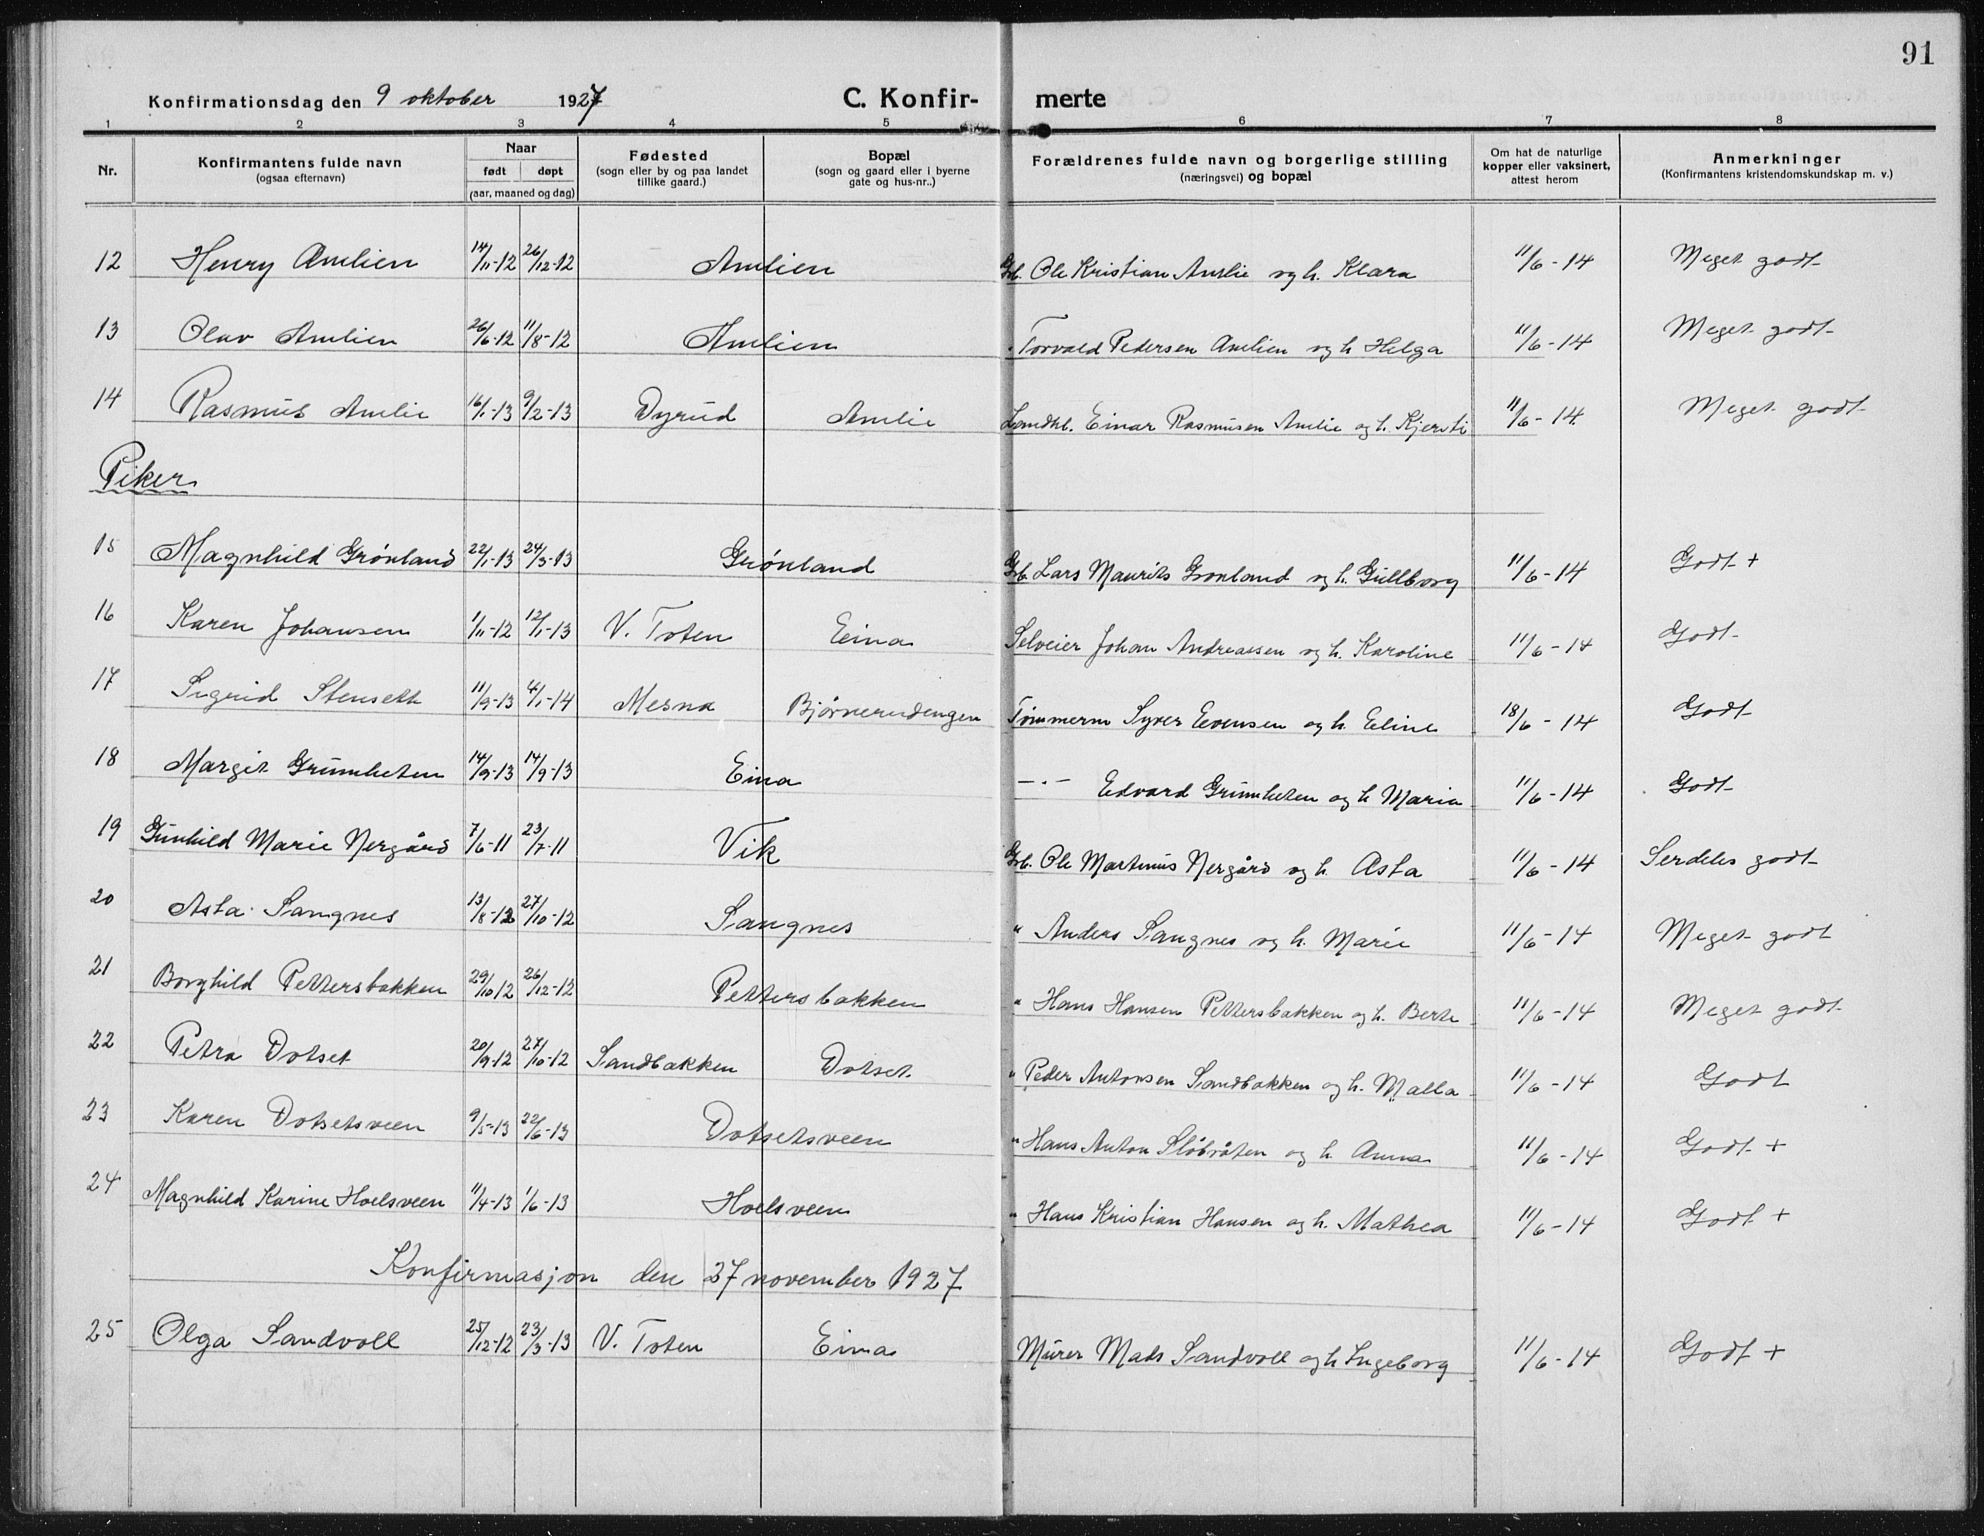 91
Konfirmationsdag den 9 oktober 1927 C. Konfir- merte
1 2 3 4 5 6 7 8
Nr. Konfirmantens fulde navn (ogsaa efternavn) Naar født døpt (aar, maaned og dag) Fødested (sogn eller by og paa landet tillike gaard.) Bopæl (sogn og gaard eller i byerne gate og hus-nr..) Forældrenes fulde navn og borgerlige stilling (næringsvei) og bopæl Om hat de naturlige kopper eller vaksinert, attest herom Anmerkninger (Konfirmantens kristendomskundskap m. v.)
12 Henry Amlien 14/11-12 26/12-12 Amlien Grb. Ole Kristian Amlie og h. Klara 11/6-14 Meget godt
13 Olav Amlien 26/6-12 11/8-12 Amlien Torvald Pedersen Amlien og h Helga 11/6-14 Meget godt
14 Rasmus Amlie 16/1-13 9/2-13 Dyrud Amlie Landhl. Einar Rasmusen Amlie og h. Kjersti 11/6-14. Meget godt
Piker
15 Magnhild Grönland 22/1-13 24/3-13 Grönland Grb. Lars Maurits Gronland og h. Gullborg 11/6-14 Godt +
16 Karen Johansen 1/11-12 12/1-13 V. Toten Eina Selveier Johan Andreassen og h. Karoline 11/6-14 Godt
17 Sigrid Stenseth 11/9-13 4/1-14 Mesna Bjørnerudengen Tömmerm Syver Evensen og h. Eline 18/6-14 Godt
18 Margit Grümheten 14/9-13 14/9-13 Eina —·— Edvard Grümheten og h Maria 11/6-14 Godt
19 Gunhild Marie Nergård 7/6-11 23/7-11 Vik Grb. Ole Martinus Nergård og h. Asta 11/6-14 Serdeles godt
20 Asta Sangnes 13/8-12 27/10-12 Sangnes " Anders Sangnes og h. Marie 11/6-14 Meget godt
21 Borghild Pettersbakken 29/10 12 26/12-12 Pettersbakken " Hans Hansen Pettersbakken og h. Berte 11/6-14 Meget godt
22 Petra Dotset 20/9-12 27/10-12 Sandbakken Dotset " Peder Antonsen Sandbakken og h. Malla 11/6-14 Godt
23 Karen Dotsetsveen 9/5-13 22/6-13 Dotsetsveen " Hans Anton Slöbråten og h Anna 11/6-14 Godt +
24 Magnhild Karine Hoelsveen 11/4-13 1/6-13 Hoelsveen " Hans Kristian Hansen og h. Mathea 11/6-14 Godt +
Konfirmasjon den 27 november 1927
25 Olga Sandvoll 25/12-12 23/3-13 V. Toten Eina Mürer Mads Sandvoll og h Ingeborg 11/6-14 Godt +